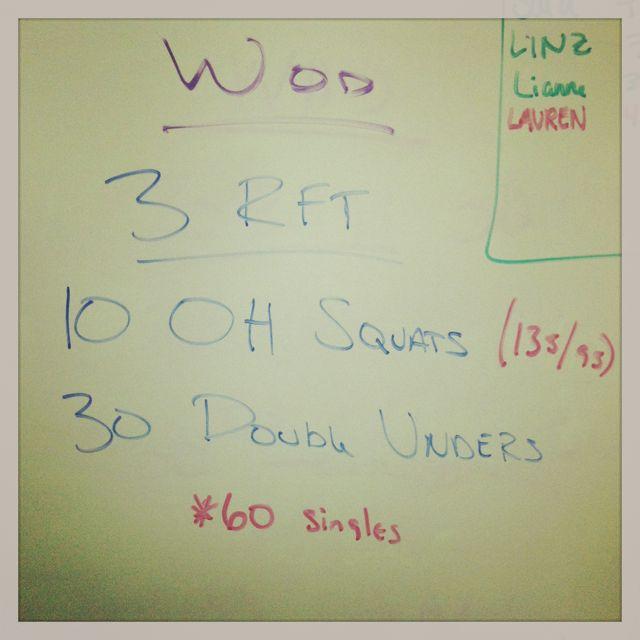 WOD
3 RFT
10 OH SQUATS (135/95)
30 DOUBLE UNDERS
*60 singles
LINZ
Lianne
LAUREN